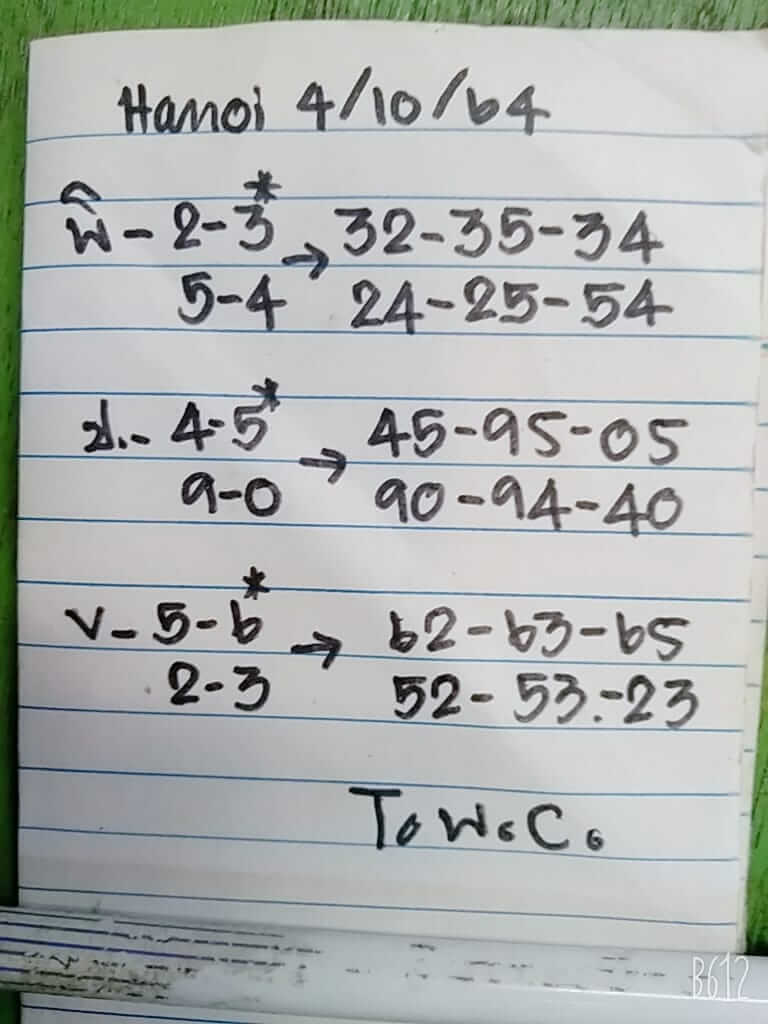 Hanoi 4/10/64
พิ - 2-3* → 32-35-34
5-4 24-25-54
ป.- 4-5* → 45-95-05
9-0 90-94-40
V- 5-6* → 62-63-65
2-3 52-53.-23
T.W.C.
B612